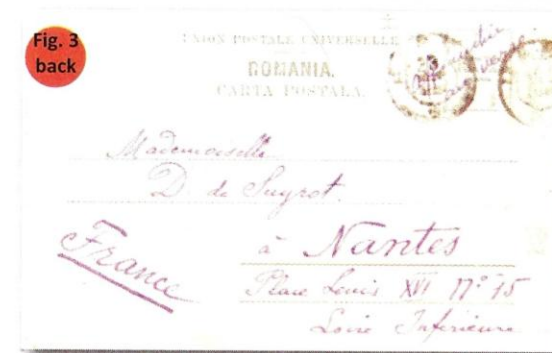 Fig. 3
back
UNION POSTALE UNIVERSELLE
ROMANIA.
CARTA POSTALA.
Mademoiselle
D de Suyrot.
à Nantes
France
Place Louis XVI Nº 15
Loire Inférieure